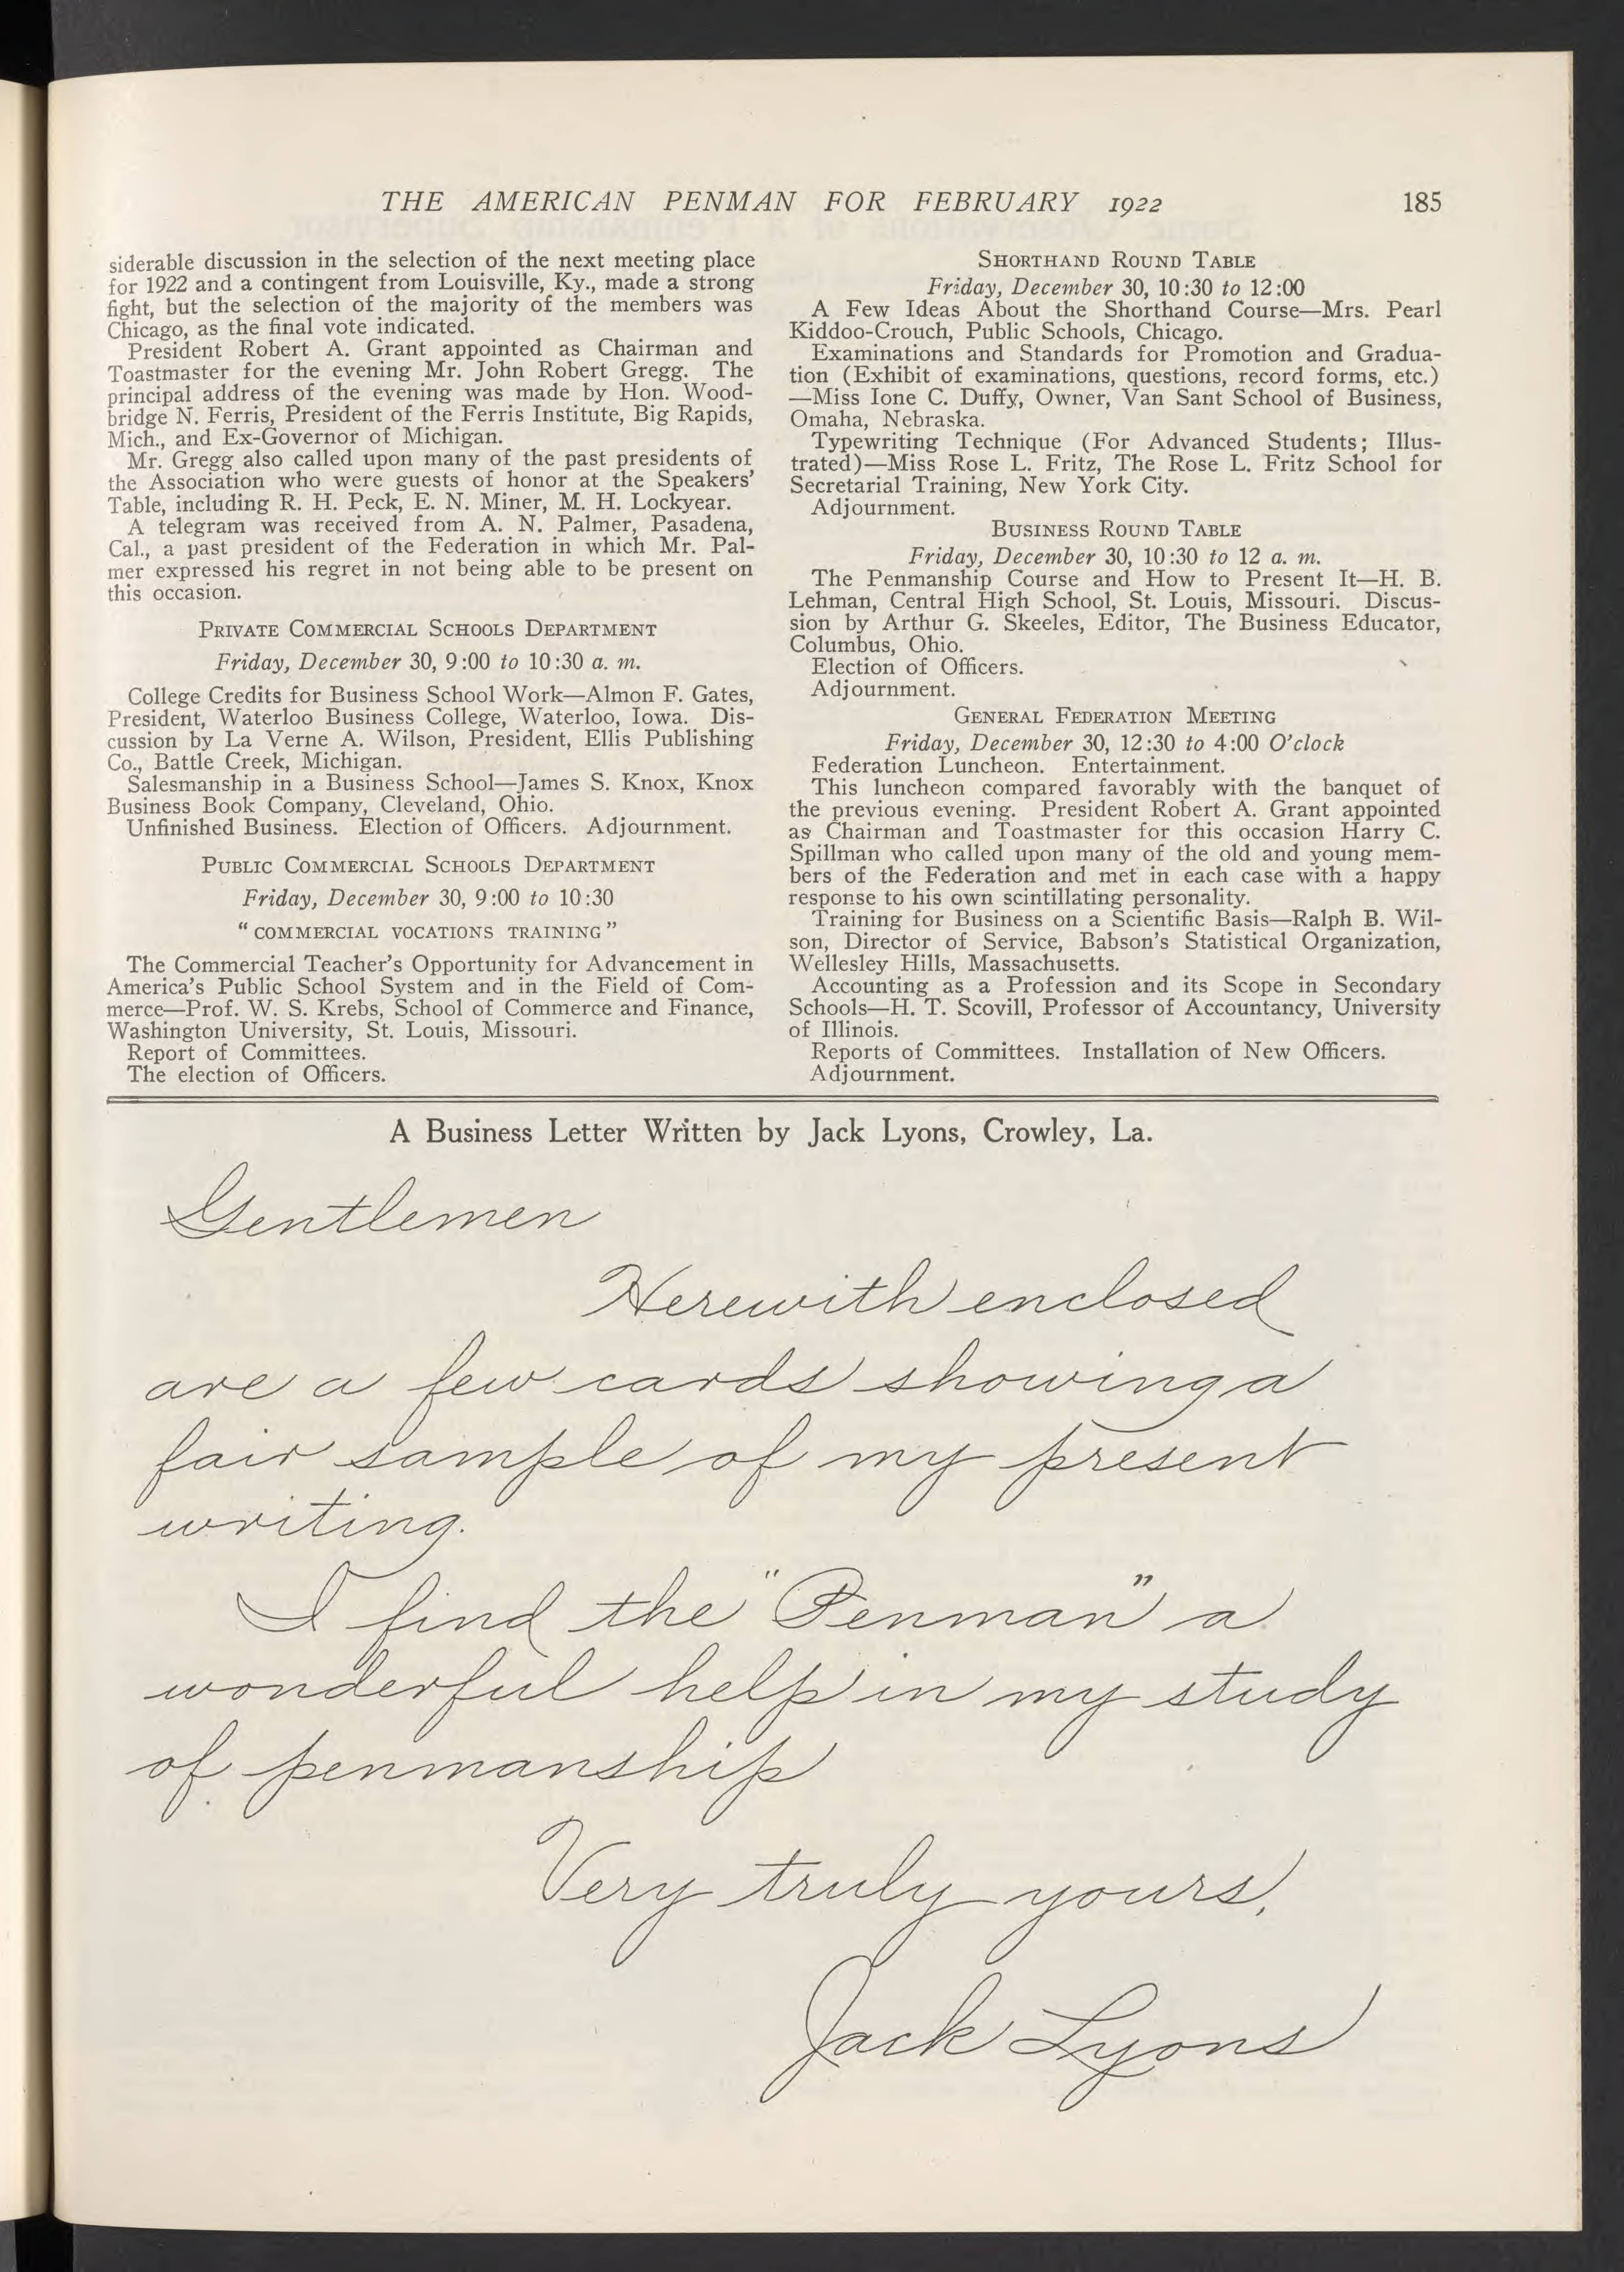 THE AMERICAN PENMAN FOR FEBRUARY 1922 185
siderable discussion in the selection of the next meeting place
for 1922 and a contingent from Louisville, Ky., made a strong
fight, but the selection of the majority of the members was
Chicago, as the final vote indicated.
President Robert A. Grant appointed as Chairman and
Toastmaster for the evening Mr. John Robert Gregg. The
principal address of the evening was made by Hon. Wood-
bridge N. Ferris, President of the Ferris Institute, Big Rapids,
Mich., and Ex-Governor of Michigan.
Mr. Gregg also called upon many of the past presidents of
the Association who were guests of honor at the Speakers'
Table, including R. H. Peck, E. N. Miner, M. H. Lockyear.
A telegram was received from A. N. Palmer, Pasadena,
Cal., a past president of the Federation in which Mr. Pal-
mer expressed his regret in not being able to be present on
this occasion.
PRIVATE COMMERCIAL SCHOOLS DEPARTMENT
Friday, December 30, 9:00 to 10:30 a. m.
College Credits for Business School Work—Almon F. Gates,
President, Waterloo Business College, Waterloo, Iowa. Dis-
cussion by La Verne A. Wilson, President, Ellis Publishing
Co., Battle Creek, Michigan.
Salesmanship in a Business School—James S. Knox, Knox
Business Book Company, Cleveland, Ohio.
Unfinished Business. Election of Officers. Adjournment.
PUBLIC COMMERCIAL SCHOOLS DEPARTMENT
Friday, December 30, 9:00 to 10:30
" COMMERCIAL VOCATIONS TRAINING "
The Commercial Teacher's Opportunity for Advancement in
America's Public School System and in the Field of Com-
merce—Prof. W. S. Krebs, School of Commerce and Finance,
Washington University, St. Louis, Missouri.
Report of Committees.
The election of Officers.
SHORTHAND ROUND TABLE
Friday, December 30, 10:30 to 12:00
A Few Ideas About the Shorthand Course—Mrs. Pearl
Kiddoo-Crouch, Public Schools, Chicago.
Examinations and Standards for Promotion and Gradua-
tion (Exhibit of examinations, questions, record forms, etc.)
—Miss Ione C. Duffy, Owner, Van Sant School of Business,
Omaha, Nebraska.
Typewriting Technique (For Advanced Students; Illus-
trated)—Miss Rose L. Fritz, The Rose L. Fritz School for
Secretarial Training, New York City.
Adjournment.
BUSINESS ROUND TABLE
Friday, December 30, 10:30 to 12 a. m.
The Penmanship Course and How to Present It—H. B.
Lehman, Central High School, St. Louis, Missouri. Discus-
sion by Arthur G. Skeeles, Editor, The Business Educator,
Columbus, Ohio.
Election of Officers.
Adjournment.
GENERAL FEDERATION MEETING
Friday, December 30, 12:30 to 4:00 O'clock
Federation Luncheon. Entertainment.
This luncheon compared favorably with the banquet of
the previous evening. President Robert A. Grant appointed
as Chairman and Toastmaster for this occasion Harry C.
Spillman who called upon many of the old and young mem-
bers of the Federation and met in each case with a happy
response to his own scintillating personality.
Training for Business on a Scientific Basis—Ralph B. Wil-
son, Director of Service, Babson's Statistical Organization,
Wellesley Hills, Massachusetts.
Accounting as a Profession and its Scope in Secondary
Schools—H. T. Scovill, Professor of Accountancy, University
of Illinois.
Reports of Committees. Installation of New Officers.
Adjournment.
A Business Letter Written by Jack Lyons, Crowley, La.
Gentlemen
Herewith enclosed
are a few cards showing a
fair sample of my present
writing.
I find the "Penman" a
wonderful help in my study
of penmanship
Very truly yours,
Jack Lyons